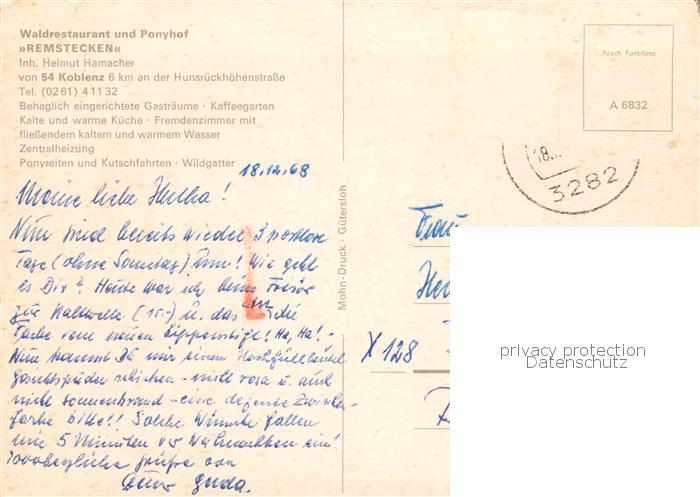 Waldrestaurant und Ponyhof
»REMSTECKEN«
Inh. Helmut Hamacher
von 54 Koblenz 6 km an der Hunsrückhöhenstraße
Tel. (02 61) 4 11 32
Behaglich eingerichtete Gasträume · Kaffeegarten
Kalte und warme Küche · Fremdenzimmer mit
fließendem kaltem und warmem Wasser
Zentralheizung
Ponyreiten und Kutschfahrten · Wildgatter
18.12.68
Meine liebe Hertha!
Nun sind bereits wieder 3 postlose
Tage (ohne Sonntag) um! Wie geht
es Dir? Heute war ich beim Frisör
zur Kaltwelle (15,-) u. das ist die
Farbe vom neuen Lippenstift! Ha, Ha! -
Nun kannst Du mir einen Nachfüllbeutel
Gesichtspuder schicken - nicht rosa u. auch
nicht sonnenbrand - eine dezente Zwischen-
farbe bitte!! Solche Wünsche fallen
mir 5 Minuten vor Weihnachten ein!
1000 herzliche Grüße von
Deiner Gerda.
Mohn-Druck · Gütersloh
Nach Farbfoto
A 6832
18.
3282
Frau
X 128
privacy protection
Datenschutz